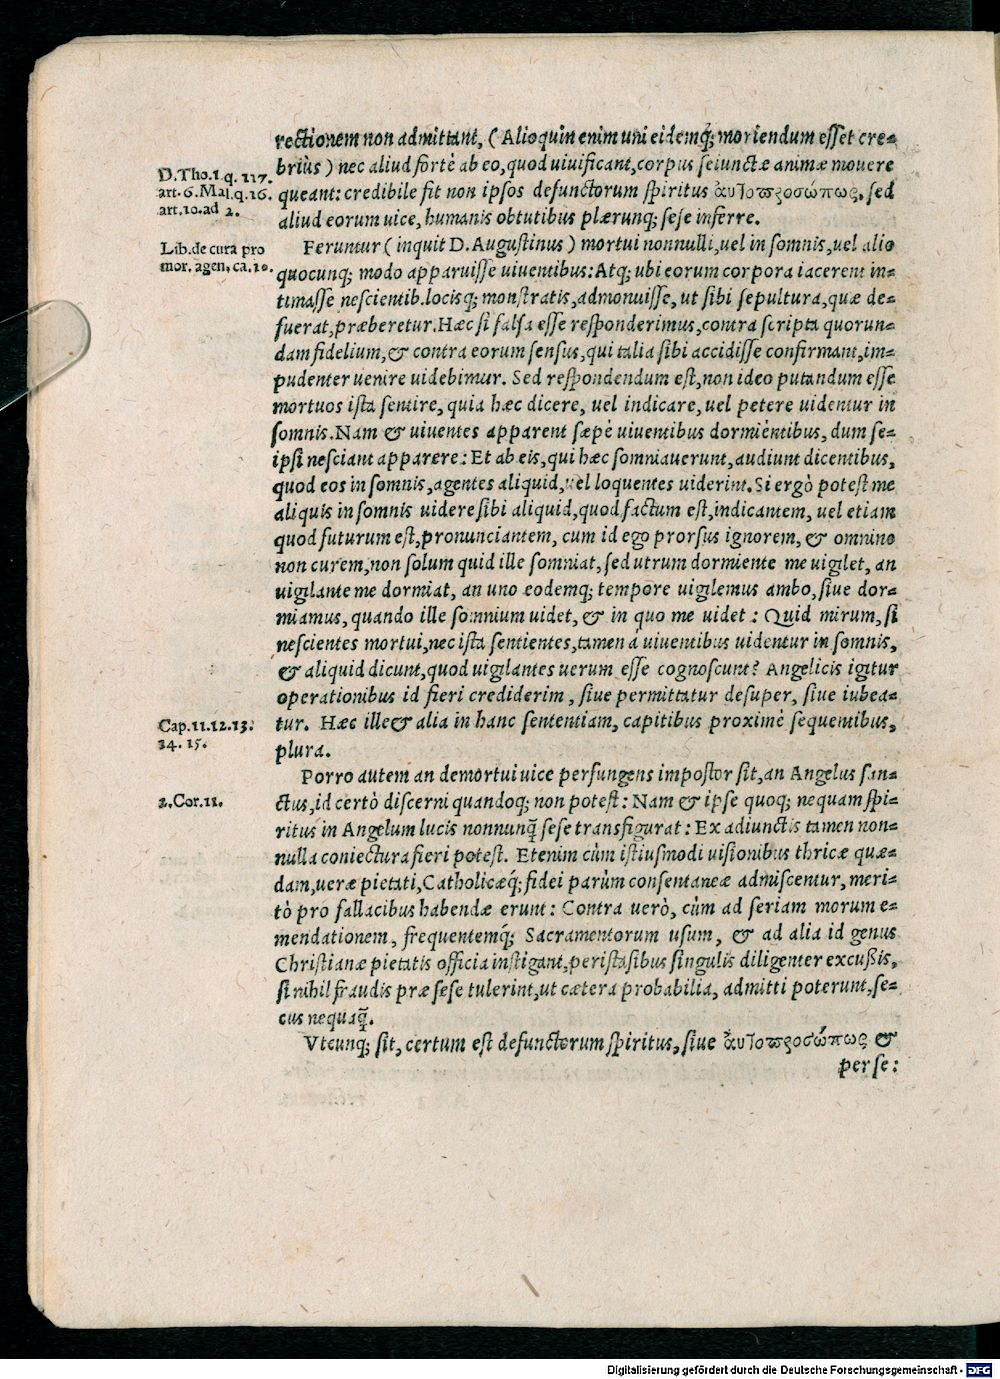 rectionem non admittant, (Alioquin enim uni eidemq; moriendum eſſet cre-
briùs) nec aliud fortè ab eo, quod uiuificant, corpus ſeiunctæ animæ mouere
D.Tho.1.q.117.
art.6.Mal.q.16.
art.10.ad 2.
queant: credibile fit non ipſos defunctorum ſpiritus αὐτοπροσώπως, ſed
aliud eorum uice, humanis obtutibus plærunq; ſeſe inferre.
Lib.de cura pro
mor. agen, ca.10.
Feruntur (inquit D. Auguſtinus) mortui nonnulli, uel in ſomnis, uel alio
quocunq; modo apparuiſſe uiuentibus: Atq; ubi eorum corpora iacerent in-
timaſſe neſcientib. locisq; monſtratis, admonuiſſe, ut ſibi ſepultura, quæ de-
fuerat, præberetur. Hæc ſi falſa eſſe reſponderimus, contra ſcripta quorun-
dam fidelium, & contra eorum ſenſus, qui talia ſibi accidiſſe confirmant, im-
pudenter uenire uidebimur. Sed reſpondendum eſt, non ideo putandum eſſe
mortuos iſta ſentire, quia hæc dicere, uel indicare, uel petere uidentur in
ſomnis. Nam & uiuentes apparent ſæpè uiuentibus dormiéntibus, dum ſe-
ipſi neſciant apparere: Et ab eis, qui hæc ſomniauerunt, audiunt dicentibus,
quod eos in ſomnis, agentes aliquid, uel loquentes uiderint. Si ergò poteſt me
aliquis in ſomnis uidere ſibi aliquid, quod factum eſt, indicantem, uel etiam
quod futurum eſt, pronunciantem, cum id ego prorſus ignorem, & omnino
non curem, non ſolum quid ille ſomniat, ſed utrum dormiente me uigilet, an
uigilante me dormiat, an uno eodemq; tempore uigilemus ambo, ſiue dor-
miamus, quando ille ſomnium uidet, & in quo me uidet: Quid mirum, ſi
neſcientes mortui, nec iſta ſentientes, tamen à uiuentibus uidentur in ſomnis,
& aliquid dicunt, quod uigilantes uerum eſſe cognoſcunt? Angelicis igitur
operationibus id fieri crediderim, ſiue permittatur deſuper, ſiue iubea-
Cap.11.12.13.
14. 15.
tur. Hæc ille & alia in hanc ſententiam, capitibus proximè ſequentibus,
plura.
Porro autem an demortui uice perfungens impoſtor ſit, an Angelus ſan-
2.Cor.11.
ctus, id certò diſcerni quandoq; non poteſt: Nam & ipſe quoq; nequam ſpi-
ritus in Angelum lucis nonnunq̃ ſeſe transfigurat: Ex adiunctis tamen non-
nulla coniectura fieri poteſt. Etenim cùm iſtiusmodi uiſionibus thricæ quæ-
dam, ueræ pietati, Catholicæq́; fidei parùm conſentaneæ admiſcentur, meri-
tò pro fallacibus habendæ erunt: Contra uerò, cùm ad ſeriam morum e-
mendationem, frequentemq́; Sacramentorum uſum, & ad alia id genus
Chriſtianæ pietatis officia inſtigant, periſtaſibus ſingulis diligenter excußis,
ſi nihil fraudis præ ſeſe tulerint, ut cætera probabilia, admitti poterunt, ſe-
cus nequaq̃.
Vtcunq; ſit, certum eſt defunctorum ſpiritus, ſiue αὐτοπροσώπως &
per ſe:
Digitalisierung gefördert durch die Deutsche Forschungsgemeinschaft - DFG